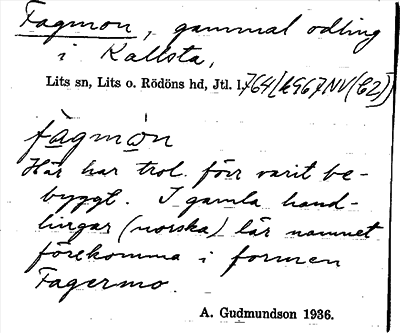 Fagmon, gammal odling
i Kallsta,
Lits sn, Lits o. Rödöns hd, Jtl. l.
fagmon
Här har trol. förr varit be-
byggt. I gamla hand-
lingar (norska) lär namnet
förekomma i formen
Fagermo.
A. Gudmundson 1936.